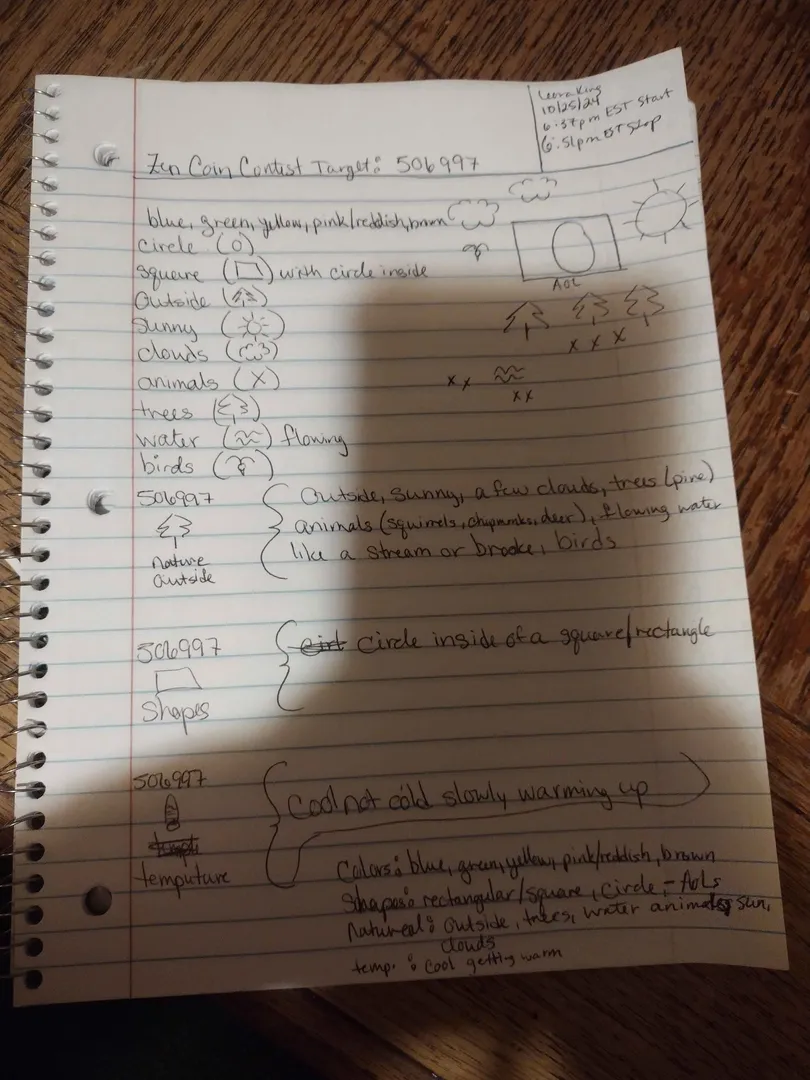 Leora King
10/25/24
6:37pm EST Start
6:51pm EST Stop
Zen Coin Contist Target: 506997
blue, green, yellow, pink/reddish, brown
circle (O)
square ( ) with circle inside
AOL
Outside ( )
Sunny ( )
clouds ( )
X X X
animals (X)
X X
X X
trees ( )
water ( ) flowing
birds ( )
506997
nature
outside
Outside, sunny, a few clouds, trees (pine)
animals (squirrels, chipmunks, deer), flowing water
like a stream or brooke, birds
506997
Shapes
circle inside of a square/rectangle
506997
temputure
Cool not cold slowly warming up
Colors: blue, green, yellow, pink/reddish, brown
Shapes: rectangular/square, circle, - AOLs
Natureal: outside, trees, water animals, sun,
clouds
temp. : cool getting warm